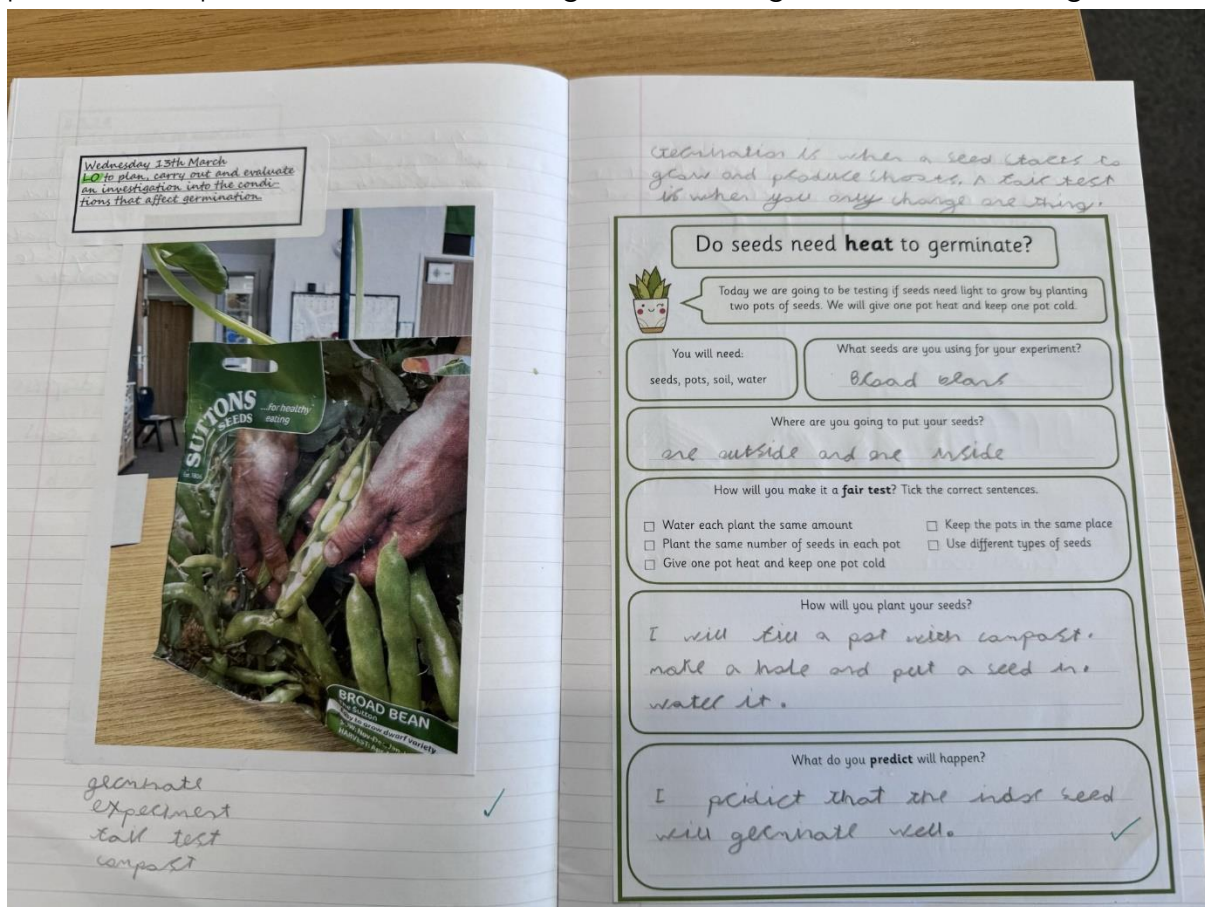 Wednesday 13th March
LO to plan, carry out and evaluate
an investigation into the condi-
tions that affect germination.
SUTTONS
SEEDS
...for healthy
eating
BROAD BEAN
The Sutton
Easy to grow dwarf variety
germinate
experiment
fair test
compost
Germination is when a seed starts to
grow and produce shoots. A fair test
is when you only change one thing.
Do seeds need heat to germinate?
Today we are going to be testing if seeds need light to grow by planting
two pots of seeds. We will give one pot heat and keep one pot cold.
You will need:
seeds, pots, soil, water
What seeds are you using for your experiment?
Broad beans
Where are you going to put your seeds?
one outside and one inside
How will you make it a fair test? Tick the correct sentences.
Water each plant the same amount
Plant the same number of seeds in each pot
Give one pot heat and keep one pot cold
Keep the pots in the same place
Use different types of seeds
How will you plant your seeds?
I will fill a pot with compost.
make a hole and put a seed in.
water it.
What do you predict will happen?
I pridict that the indor seed
will germinate well.